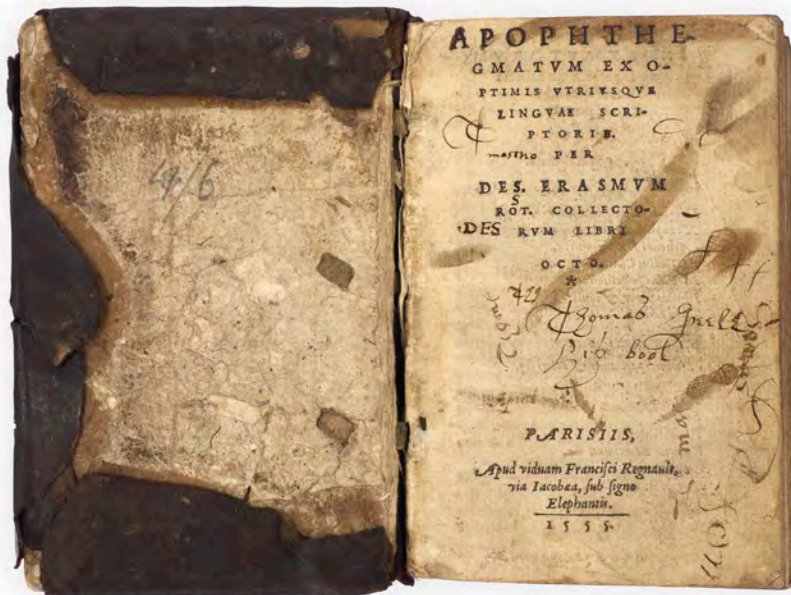 4/6
APOPHTHE-
GMATVM EX O-
PTIMIS VTRIVSQVE
LINGVAE SCRI-
PTORIB.
PER
DES. ERASMVM
S
ROT. COLLECTO-
DES RVM LIBRI
OCTO.
*
Thomas
His book
PARISIIS,
Apud viduam Francisci Regnault,
via Iacobæa, sub signo
Elephantis.
1555.